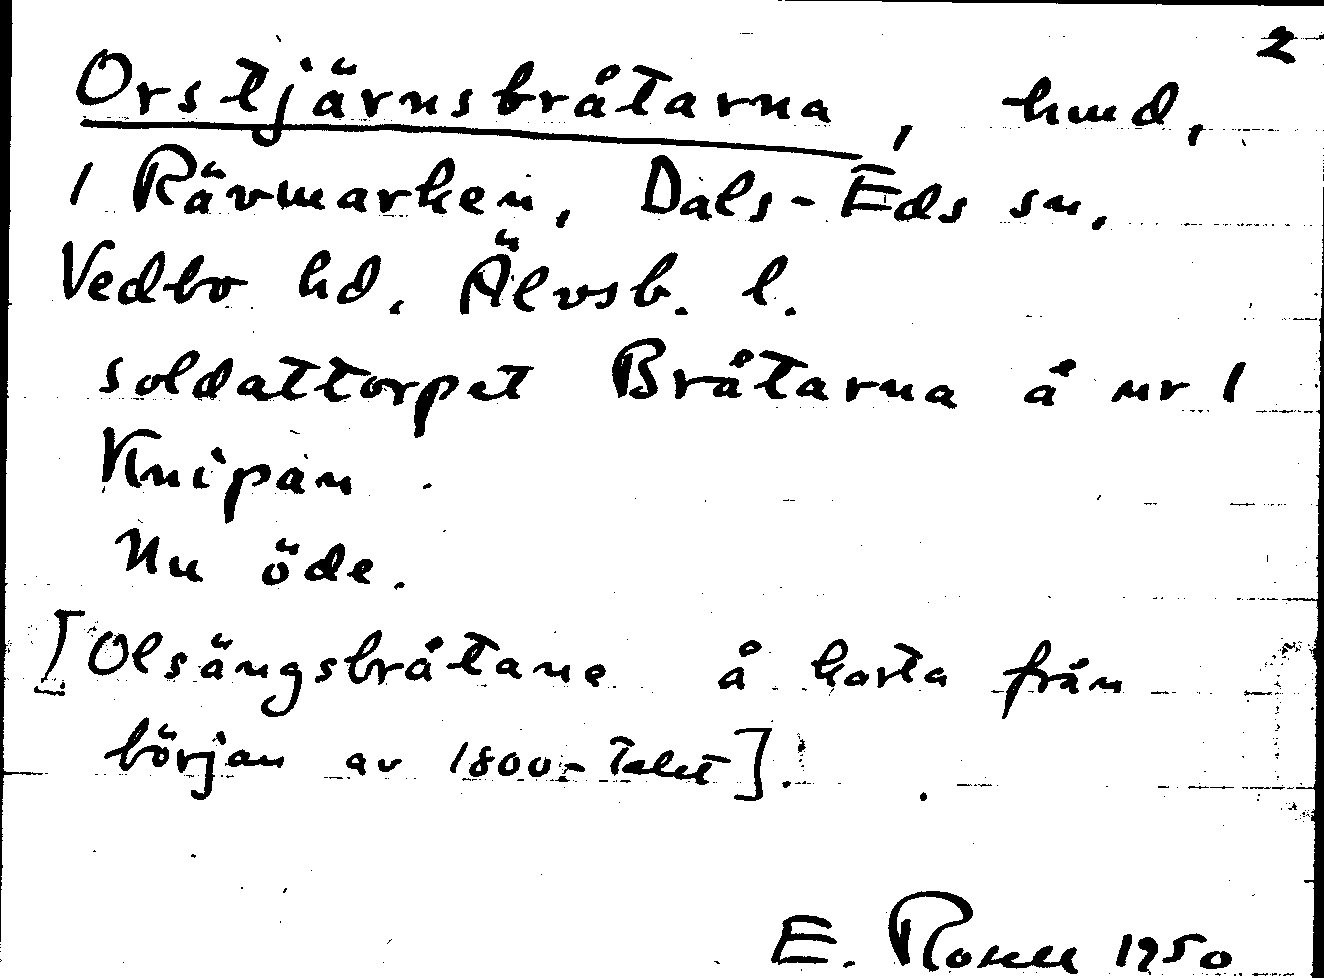 2
Orstjärnsbråtarna, hmd,
1 Rävmarken, Dals-Eds sn,
Vedbo hd. Älvsb. l.
soldattorpet Bråtarna å nr 1
Knipan.
Nu öde.
[Olsängsbråtane å karta från
början av 1800-talet].
E. Rosell 1950